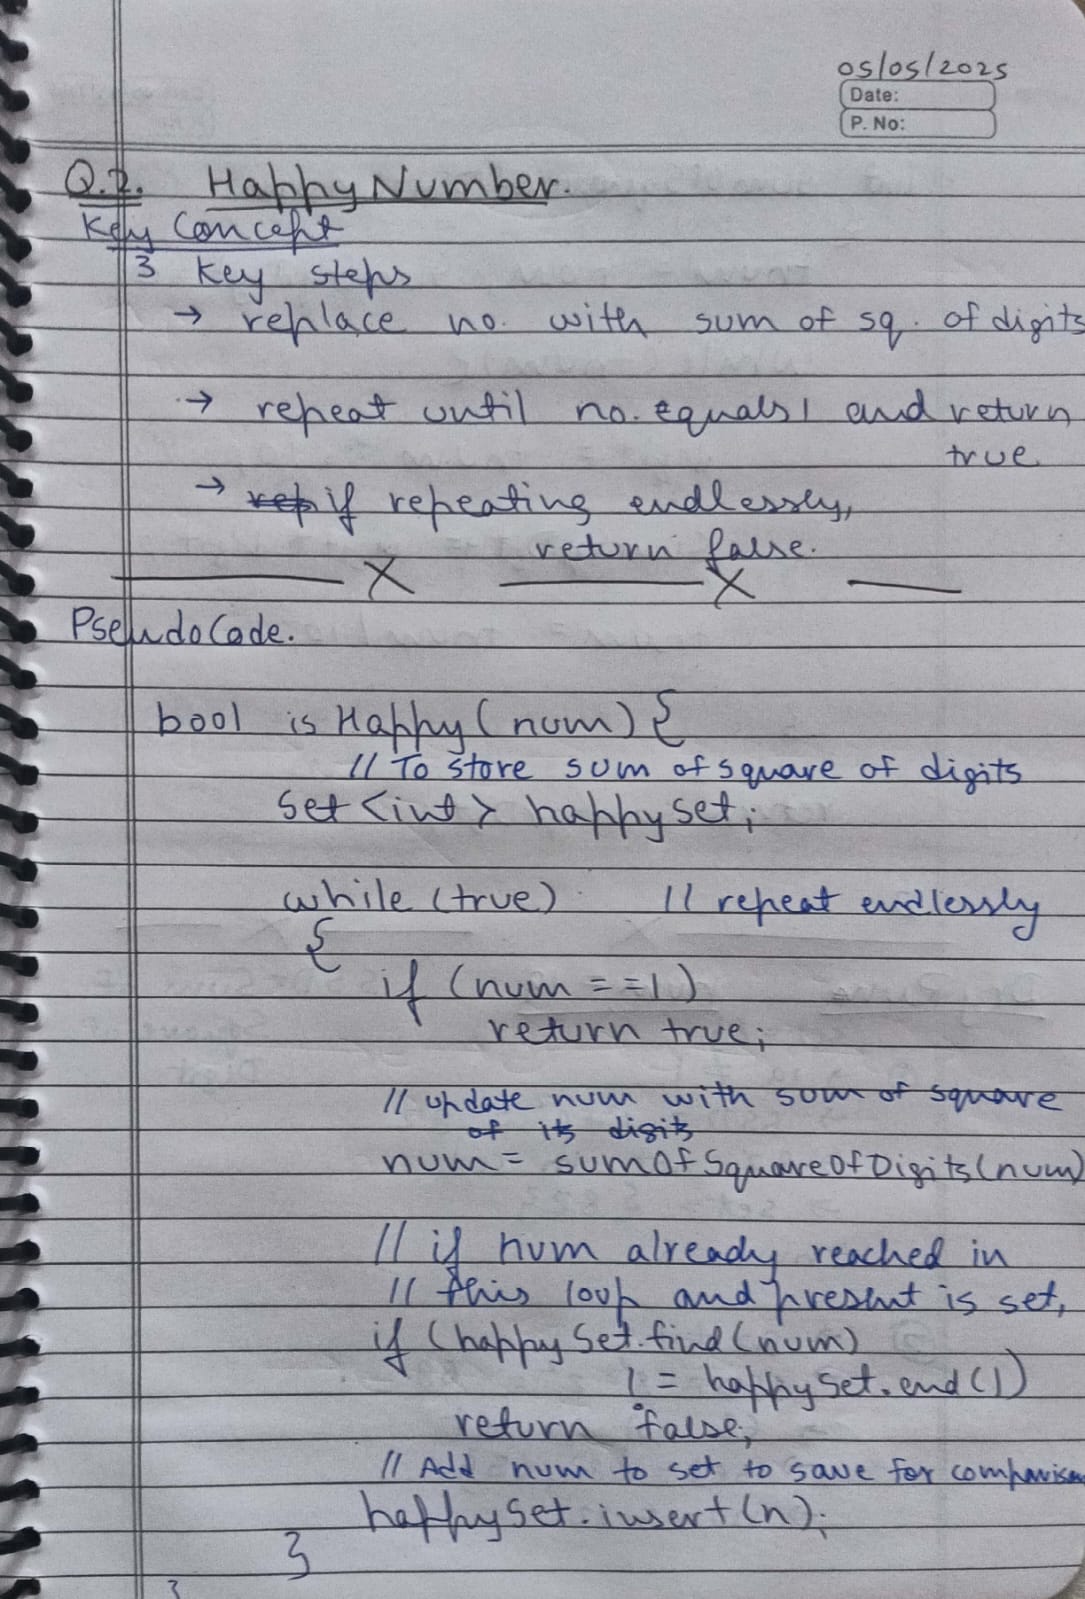 05/05/2025
Date:
P. No:
Q.2. Happy Number.
Key Concept
3 Key steps
→ replace no. with sum of sq. of digits
→ repeat until no. equals 1 and return
true
→ rep if repeating endlessly,
return false.
X X
PseudoCode.
bool isHappy(num) {
// To store sum of square of digits
Set <int> happySet;
while (true) // repeat endlessly
{
if (num == 1)
return true;
// update num with sum of square
of its digits
num = sumOfSquareOfDigits(num)
// if num already reached in
// this loop and present is set,
if (happySet.find(num)
!= happySet.end())
return false;
// Add num to set to save for comparison
happySet.insert(n);
}
}